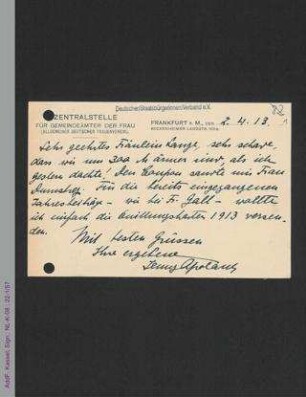 Deutscher Staatsbürgerinnen-Verband e.V.
ZENTRALSTELLE
FÜR GEMEINDEÄMTER DER FRAU
(ALLGEMEINER DEUTSCHER FRAUENVEREIN)
FRANKFURT A. M., DEN 2.4.13.
Sehr geehrtes Fräulein Lange, sehr schade,
dass wir um 300 M ärmer sind, als ich
gestern dachte! Den Coupon sandte mir Frau
Für die bereits eingegangenen
Jahresbeiträge - wie bei Fr. Gall - wollte
ich einfach die Quittungskarten 1913 versen-
den.
Mit besten Grüssen
Ihre ergebene
Jenny Apolant
AddF, Kassel, Sign.: NL-K-08 ; 22-1/57